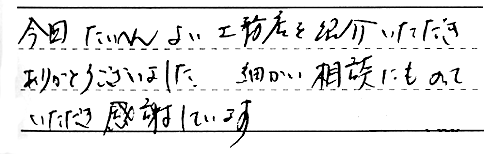 今回 たいへん よい 工務店を 紹介いただき
ありがとうございました 細かい 相談にものって
いただき 感謝しています